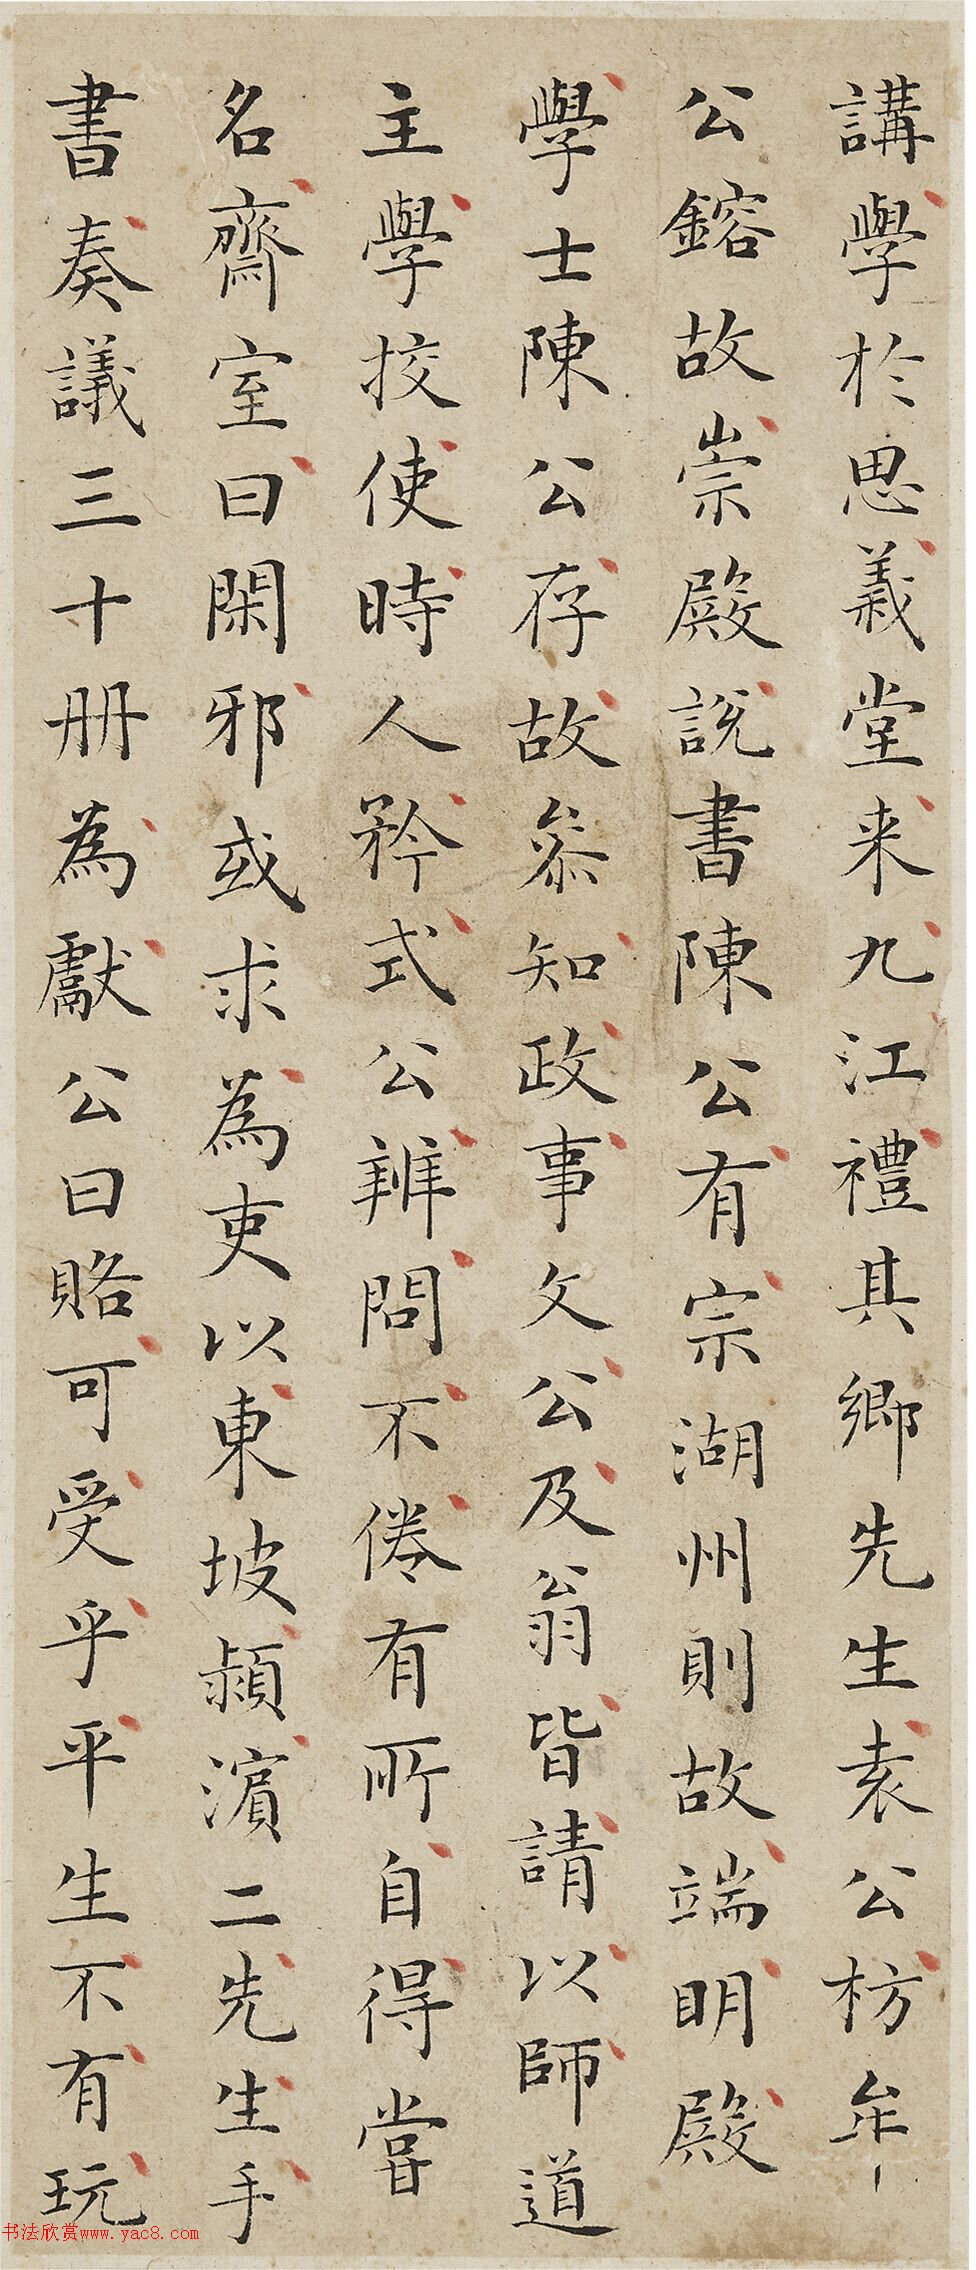 講學於思義堂来九江禮其鄉先生袁公枋牟
公鎔故崇殿說書陳公有宗湖州則故端明殿
學士陳公存故叅知政事文公及翁皆請以師道
主學挍使時人矜式公辨問不倦有所自得嘗
名齋室曰閑邪或求為吏以東坡潁濵二先生手
書奏議三十册為獻公曰賂可受乎平生不有玩
书法欣赏www.yac8.com